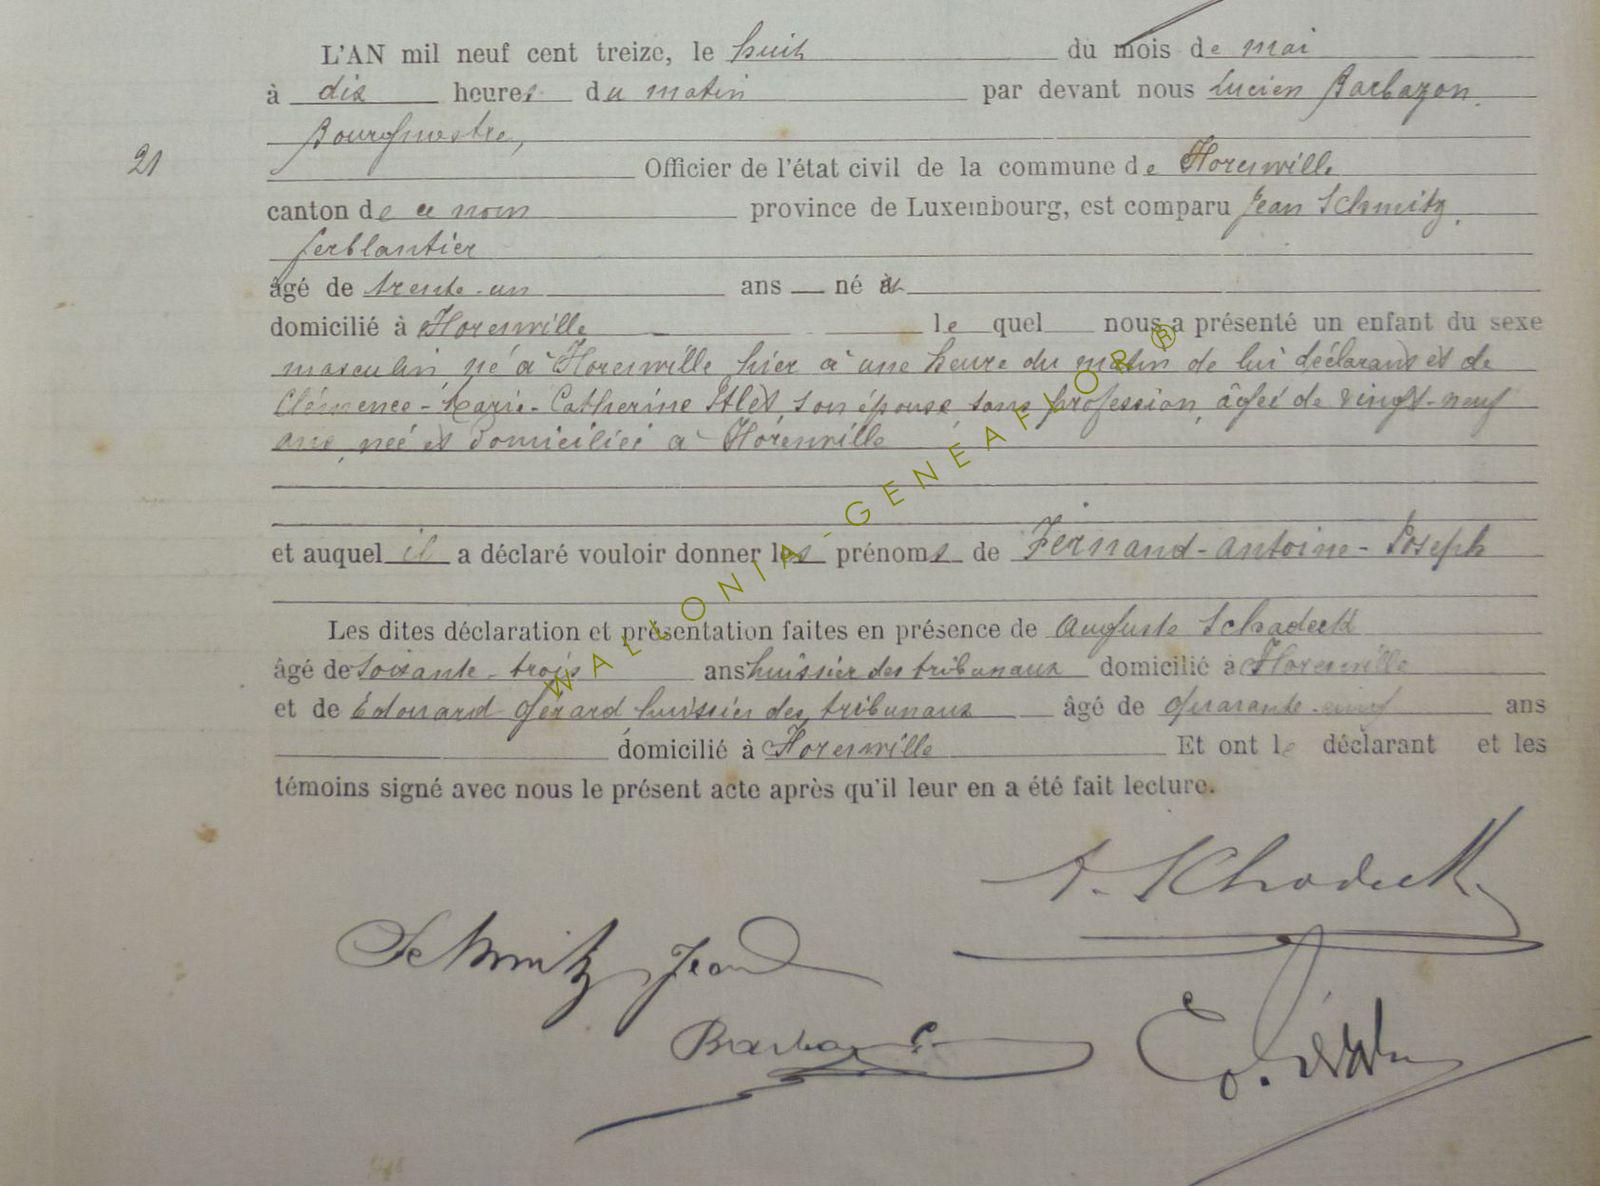 L'AN mil neuf cent treize, le huit du mois de mai
à dix heures du matin par devant nous Lucien Barbazon,
Bourgmestre,
21 Officier de l'état civil de la commune de Florenville
canton de ce nom province de Luxembourg, est comparu Jean Schmitz,
ferblantier
âgé de trente-un ans né à
domicilié à Florenville le quel nous a présenté un enfant du sexe
masculin, né à Florenville, hier à une heure du matin de lui déclarant et de
Clémence-Marie-Catherine son épouse, sans profession, âgée de vingt-neuf
ans, née et domiciliée à Florenville
et auquel il a déclaré vouloir donner les prénoms de Fernand-Antoine-Joseph
Les dites déclaration et présentation faites en présence de Auguste Schadeck
âgé de soixante-trois ans huissier des tribunaux domicilié à Florenville
et de Edouard Gérard huissier des tribunaux âgé de quarante-cinq ans
domicilié à Florenville Et ont le déclarant et les
témoins signé avec nous le présent acte après qu'il leur en a été fait lecture.
A. Schadeck
Schmitz Jean
WALLONIA-GENEAFLOR ®